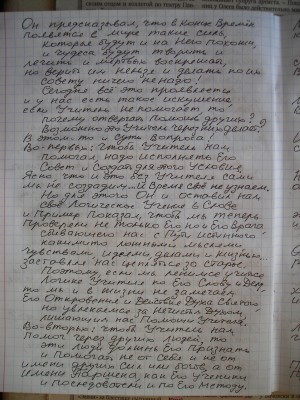 Он предсказовал, что в Конце Времён
Появятся в мире такие силы,
которые будут и на Него похожи,
и чудеса будут творить и
лечить и мёртвых воскрешать,
но верить им нельзя и делать по их
Совету ничего не надо!
Сегодня всё это проявляется
и у нас есть такое искушение
если Учитель не помогает, то
почему отвергать Помощь других?
Возможно это Учитель через них делает.
В этом то и суть Вопроса!
Во-первых: чтобы Учитель нам
помогал, надо исполнять Его
Совет и Создать для этого Условия.
Ясно что и Это без Учителя сами
мы не создадим... и Время своё не узнаем.
Но для этого Он и оставил нам
Своё Логическое Учение в Слове
и Пример Показал, чтобы мы теперь
Проверяли не только Его но и Его Врага
сбивающего нас с Пути Истинного
какими-то ложными мыслями,
чувствами, идеями делами и жизнью...
Заставляя нас цепляться за Старое.
Поэтому, если мы ленимся учиться
Логике Учителя по Его Слову и Делу
то мы и в жизни не замечаем
Его Откровения и Действия Духа Святого
но увлекаемся за Нечистым Духом,
лишающим нас Помощи Учителя.
Во-вторых: чтобы Учитель нам
Помог через других людей, то
эти люди Должны Его Признать
и Помогать не от Себя и не от
имени других Сил или богов, а от
Имени как Его Ученики
и Последователи и по Его Методу.